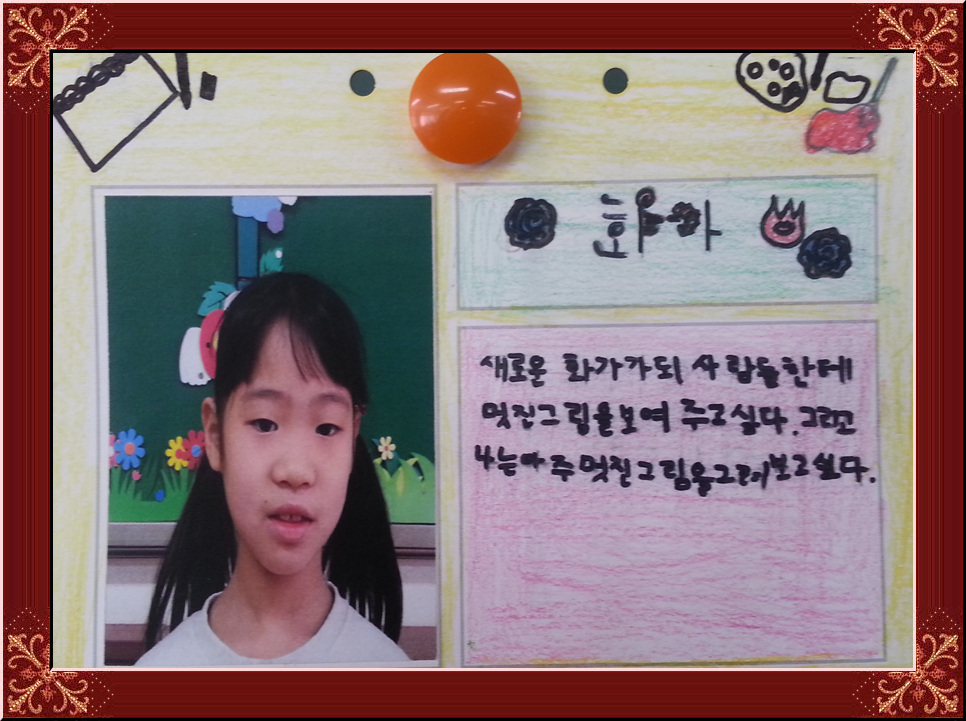 화가
새로운 화가가되 사람들한테
멋진그림을보여 주고싶다.그리고
나는아주멋진그림을그려보고싶다.